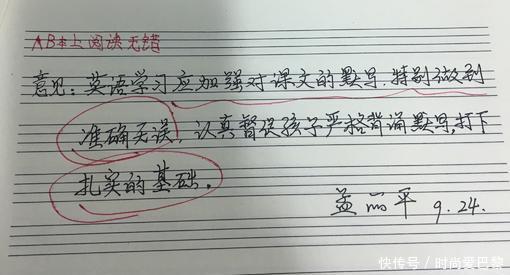 AB本上阅读无错
意见：英语学习应加强对课文的默写.特别做到
准确无误，认真督促孩子严格背诵默写,打下
扎实的基础。
孟丽平 9.24.
快传号/时尚爱巴黎